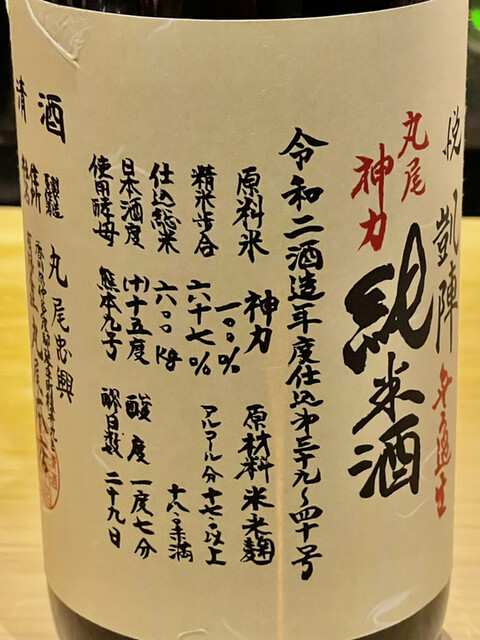 悦凱陣 無濾過生
丸尾神力
純米酒
令和二酒造年度仕込第三十九～四十号
原料米 神力 一〇〇% 原材料 米 米麹
精米歩合 六十七% アルコール分 十七.〇以上 十八.〇未満
仕込総米 六〇〇kg
日本酒度 (+)十五度 酸度 一度七分
使用酵母 熊本九号 醪日数 二十九日
清酒
丸尾忠興